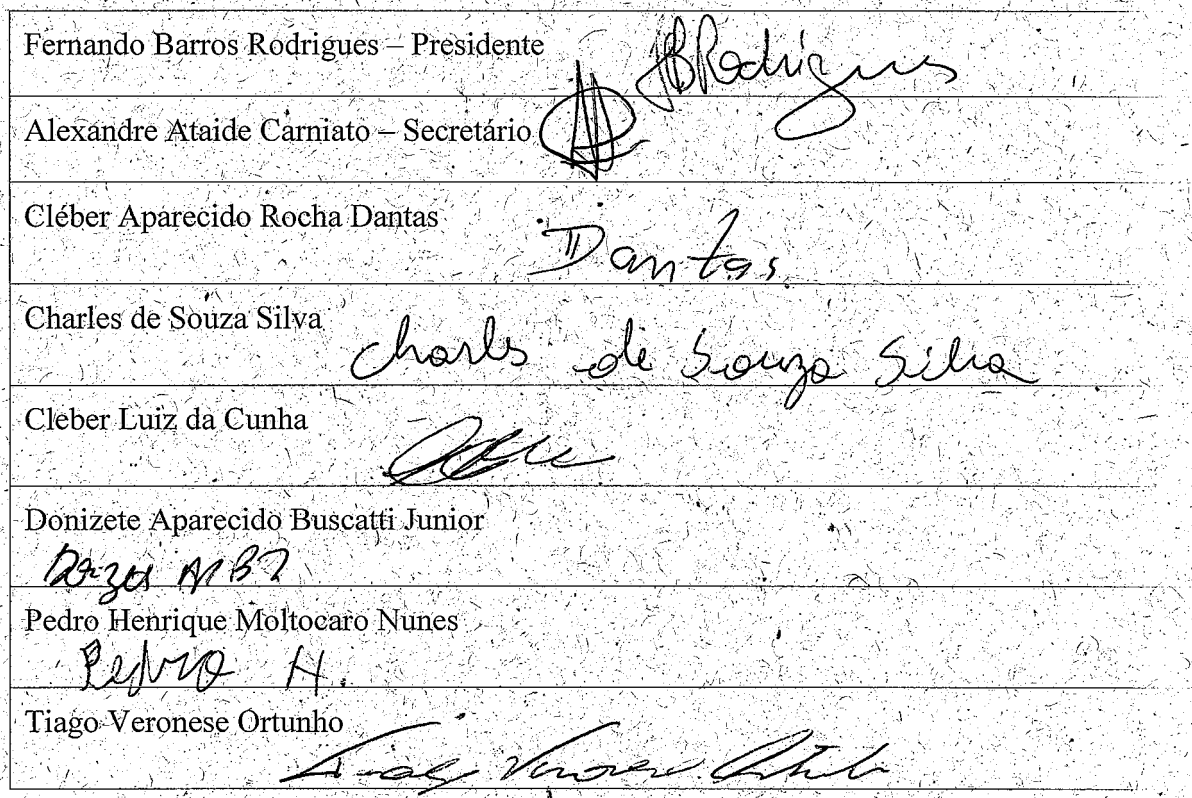 Fernando Barros Rodrigues – Presidente
FBRodrigues
Alexandre Ataide Carniato – Secretário
Cléber Aparecido Rocha Dantas
Dantas
Charles de Souza Silva
Charles de Souza Silva
Cleber Luiz da Cunha
Donizete Aparecido Buscatti Junior
Pedro Henrique Moltocaro Nunes
Pedro H.
Tiago Veronese Ortunho
Tiago Veronese Ortunho